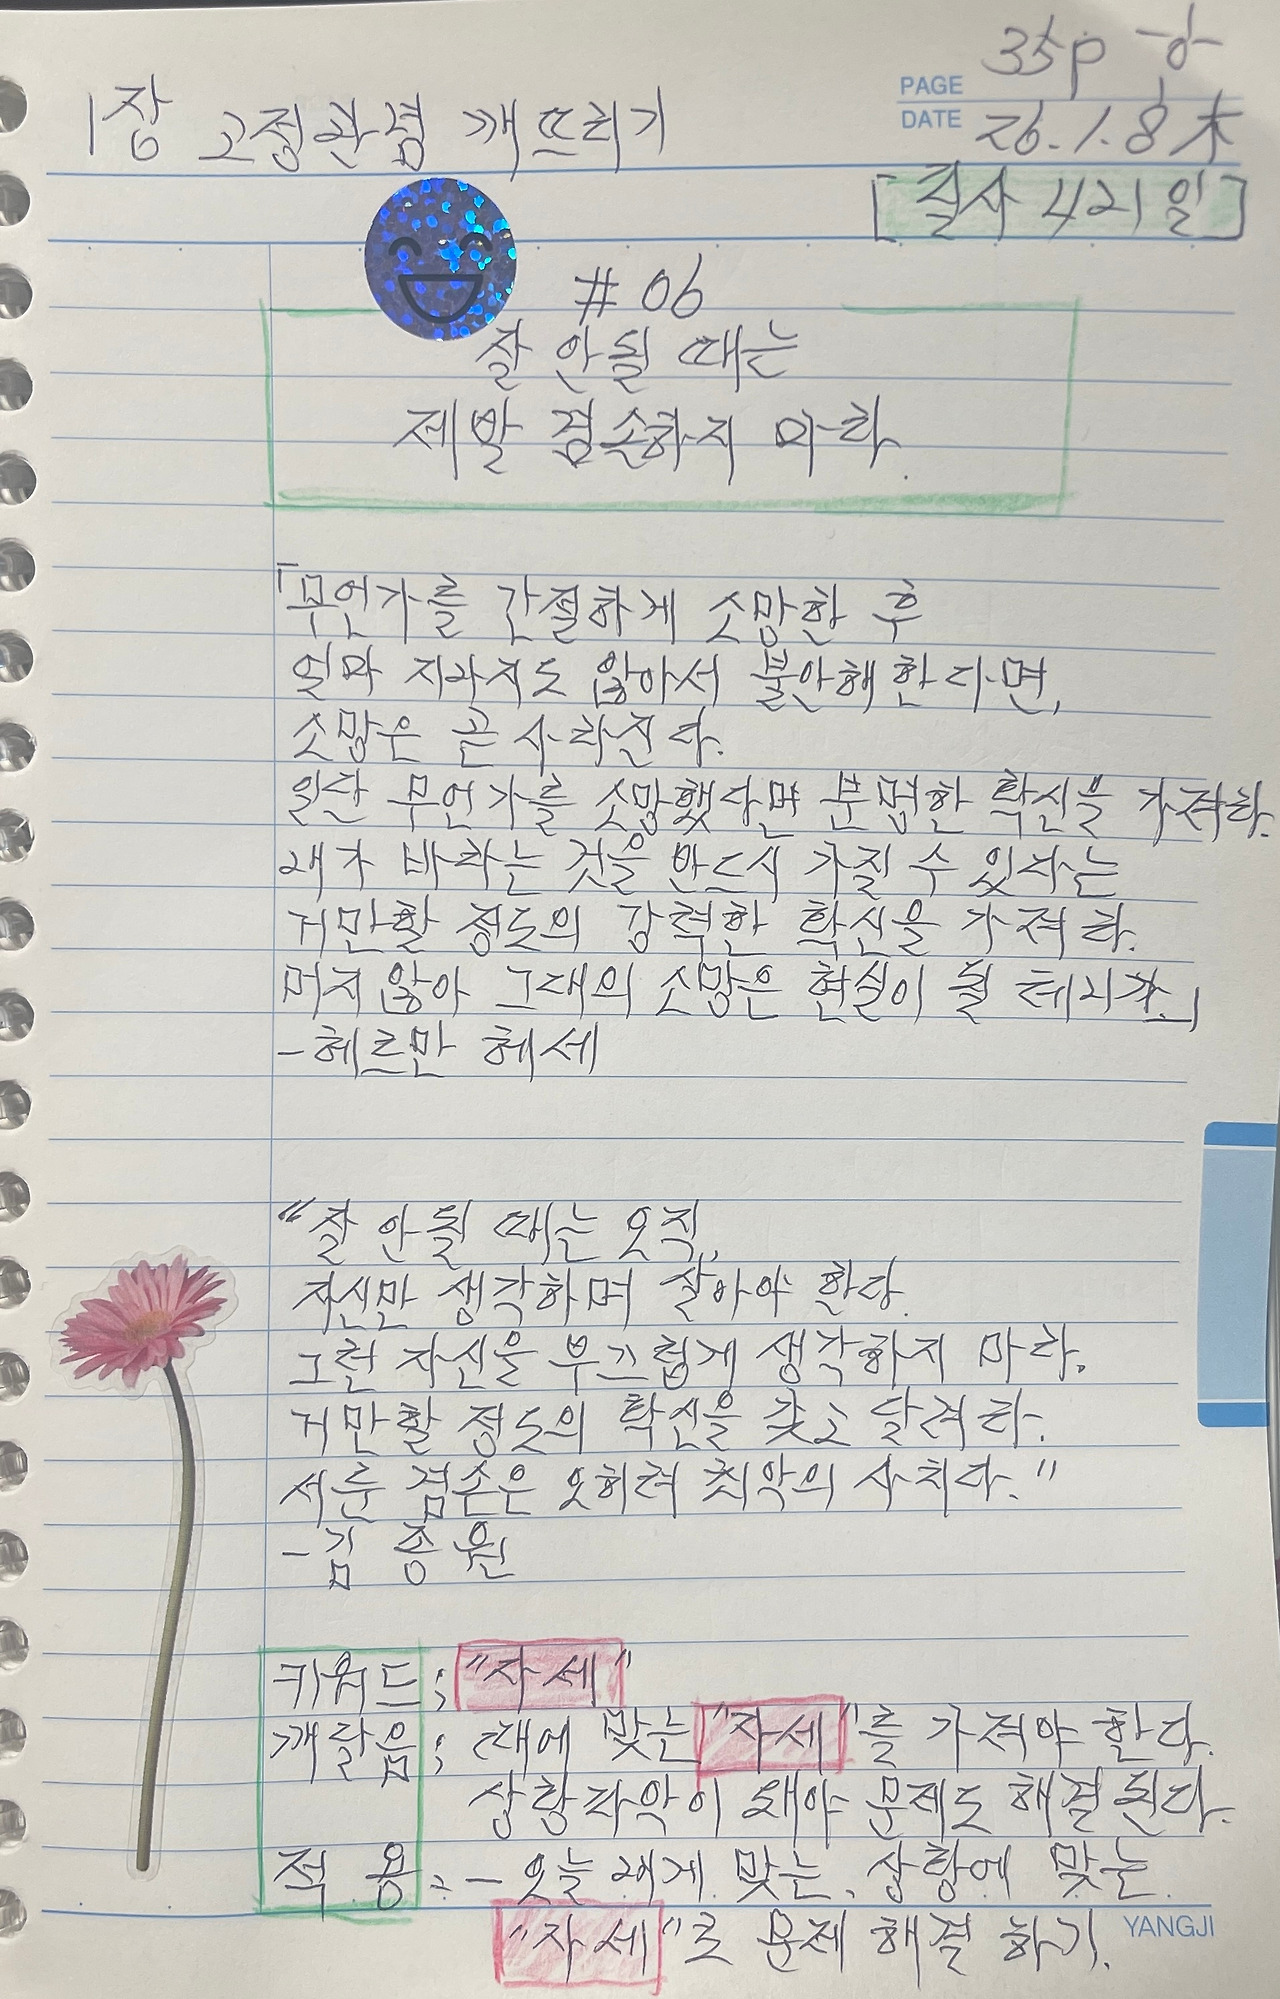 35p 하
PAGE
1장 고정관념 깨뜨리기
DATE 26.1.8 木
[필사 421일]
#06
잘 안될 때는
제발 겸손하지 마라.
「무언가를 간절하게 소망한 후
얼마 지나지도 않아서 불안해 한다면,
소망은 곧 사라진다.
일단 무언가를 소망했다면 분명한 확신을 가져라.
내가 바라는 것을 반드시 가질 수 있다는
거만할 정도의 강력한 확신을 가져라.
머지않아 그대의 소망은 현실이 될 테니까.」
-헤르만 헤세
"잘 안될 때는 오직,
자신만 생각하며 살아야 한다.
그런 자신을 부끄럽게 생각하지 마라.
거만할 정도의 확신을 갖고 달려라.
서툰 겸손은 오히려 최악의 사치다."
-김종원
키워드; "자세"
깨달음; 때에 맞는 "자세"를 가져야 한다.
상황파악이 돼야 문제도 해결된다.
적 용: - 오늘 내게 맞는, 상황에 맞는
"자세"로 문제 해결 하기.
YANGJI